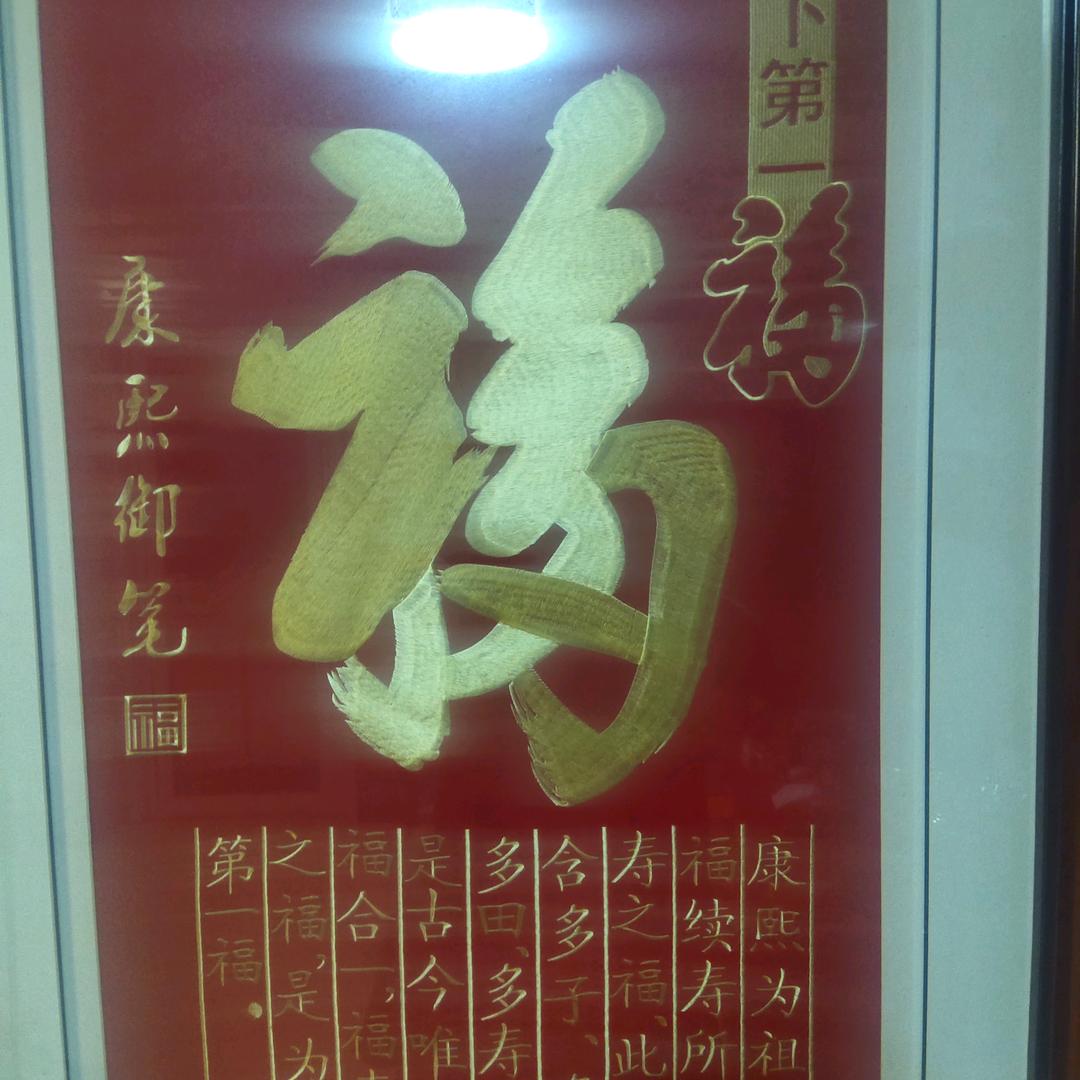 下第一
福
福
康熙御笔
福
康熙为祖
福续寿所
寿之福、此
含多子、
多田、多寿
是古今唯
福合一,福
之福,是为
第一福.